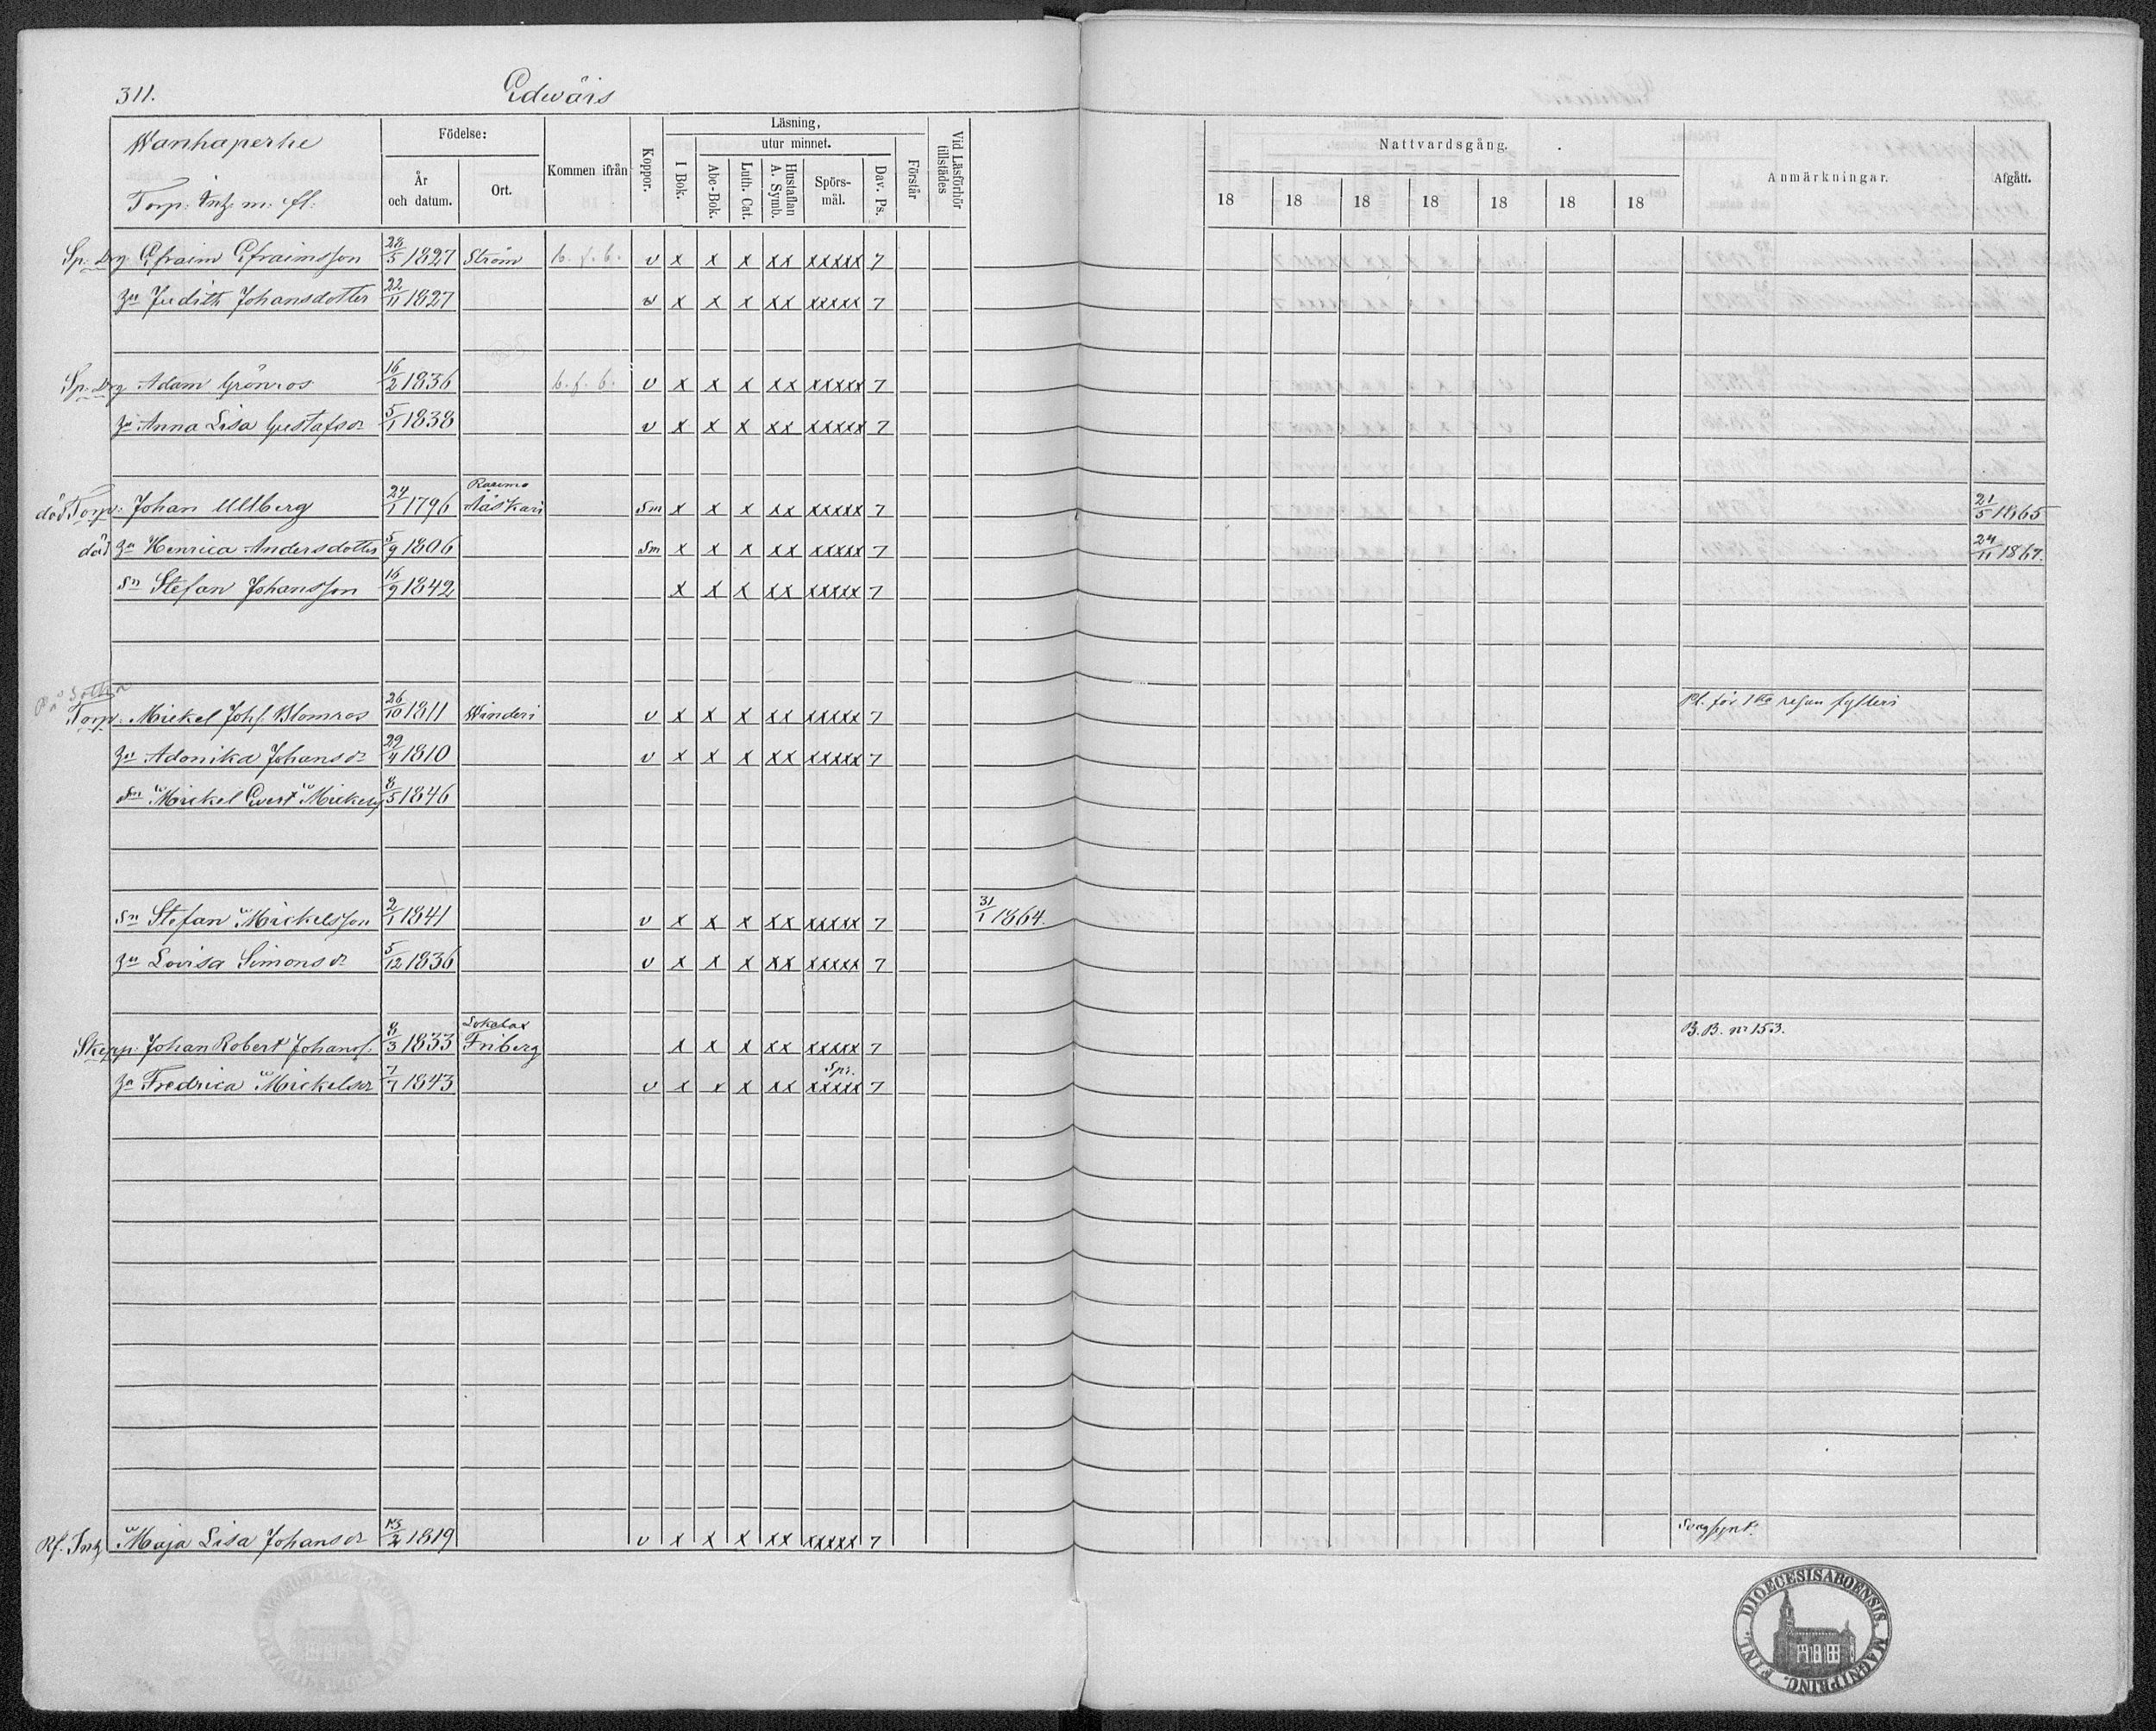 311. Edwäis
Wanhaperhe
Torp: Intz. m. fl:
Födelse:
År och datum.
Ort.
Kommen ifrån
Koppor.
Läsning,
I Bok.
utur minnet.
Abc-Bok.
Luth. Cat.
Hustaflan A. Symb.
Spörsmål.
Dav. Ps.
Förstår
Vid Läsförhör tillstädes
Nattvardsgång.
18 18 18 18 18 18 18
Anmärkningar.
Afgått.
Sp. Drg Efraim Efraimsson 28/5 1827 Ström b. f. b. v x x x xx xxxxx 7
Hu Judith Johansdotter 22/11 1827 v x x x xx xxxxx 7
Sp. Drg Adam Grönros 16/2 1836 b. f. b. v x x x xx xxxxx 7
Hu Anna Lisa Gustafsdr 5/1 1838 v x x x xx xxxxx 7
Raumo
död Torp: Johan Ullberg 24/1 1796 Aäskari Sm x x x xx xxxxx 7 21/5 1865
död Hu Henrica Andersdotter 5/9 1806 Sm x x x xx xxxxx 7 24/11 1867.
Sn Stefan Johansson 16/9 1842 x x x xx xxxxx 7
På
Torp: Mickel Johs. Blomros 26/10 1811 Winderi v x x x xx xxxxx 7 Pl. för 1sta resan fylleri
Hu Adonika Johansdr 29/4 1810 v x x x xx xxxxx 7
Sn Mickel Evert Mickelss 8/5 1846
Sn Stefan Mickelsson 2/1 1841 v x x x xx xxxxx 7 31/1 1864.
Hu Lovisa Simonsdr 5/12 1836 v x x x xx xxxxx 7
Lokalax
Skepp: Johan Robert Johanss. 8/3 1833 Friberg x x x xx xxxxx 7 B. B. nr 153.
Spr.
Hu Fredrica Mickelsdr 7/7 1843 v x x x xx xxxxx 7
Rf. Intz Maja Lisa Johansdr 13/2 1819 v x x x xx xxxxx 7 Svagsynt.
DIOECESIS ABOENSIS. MAGNI PRINC. FINL.